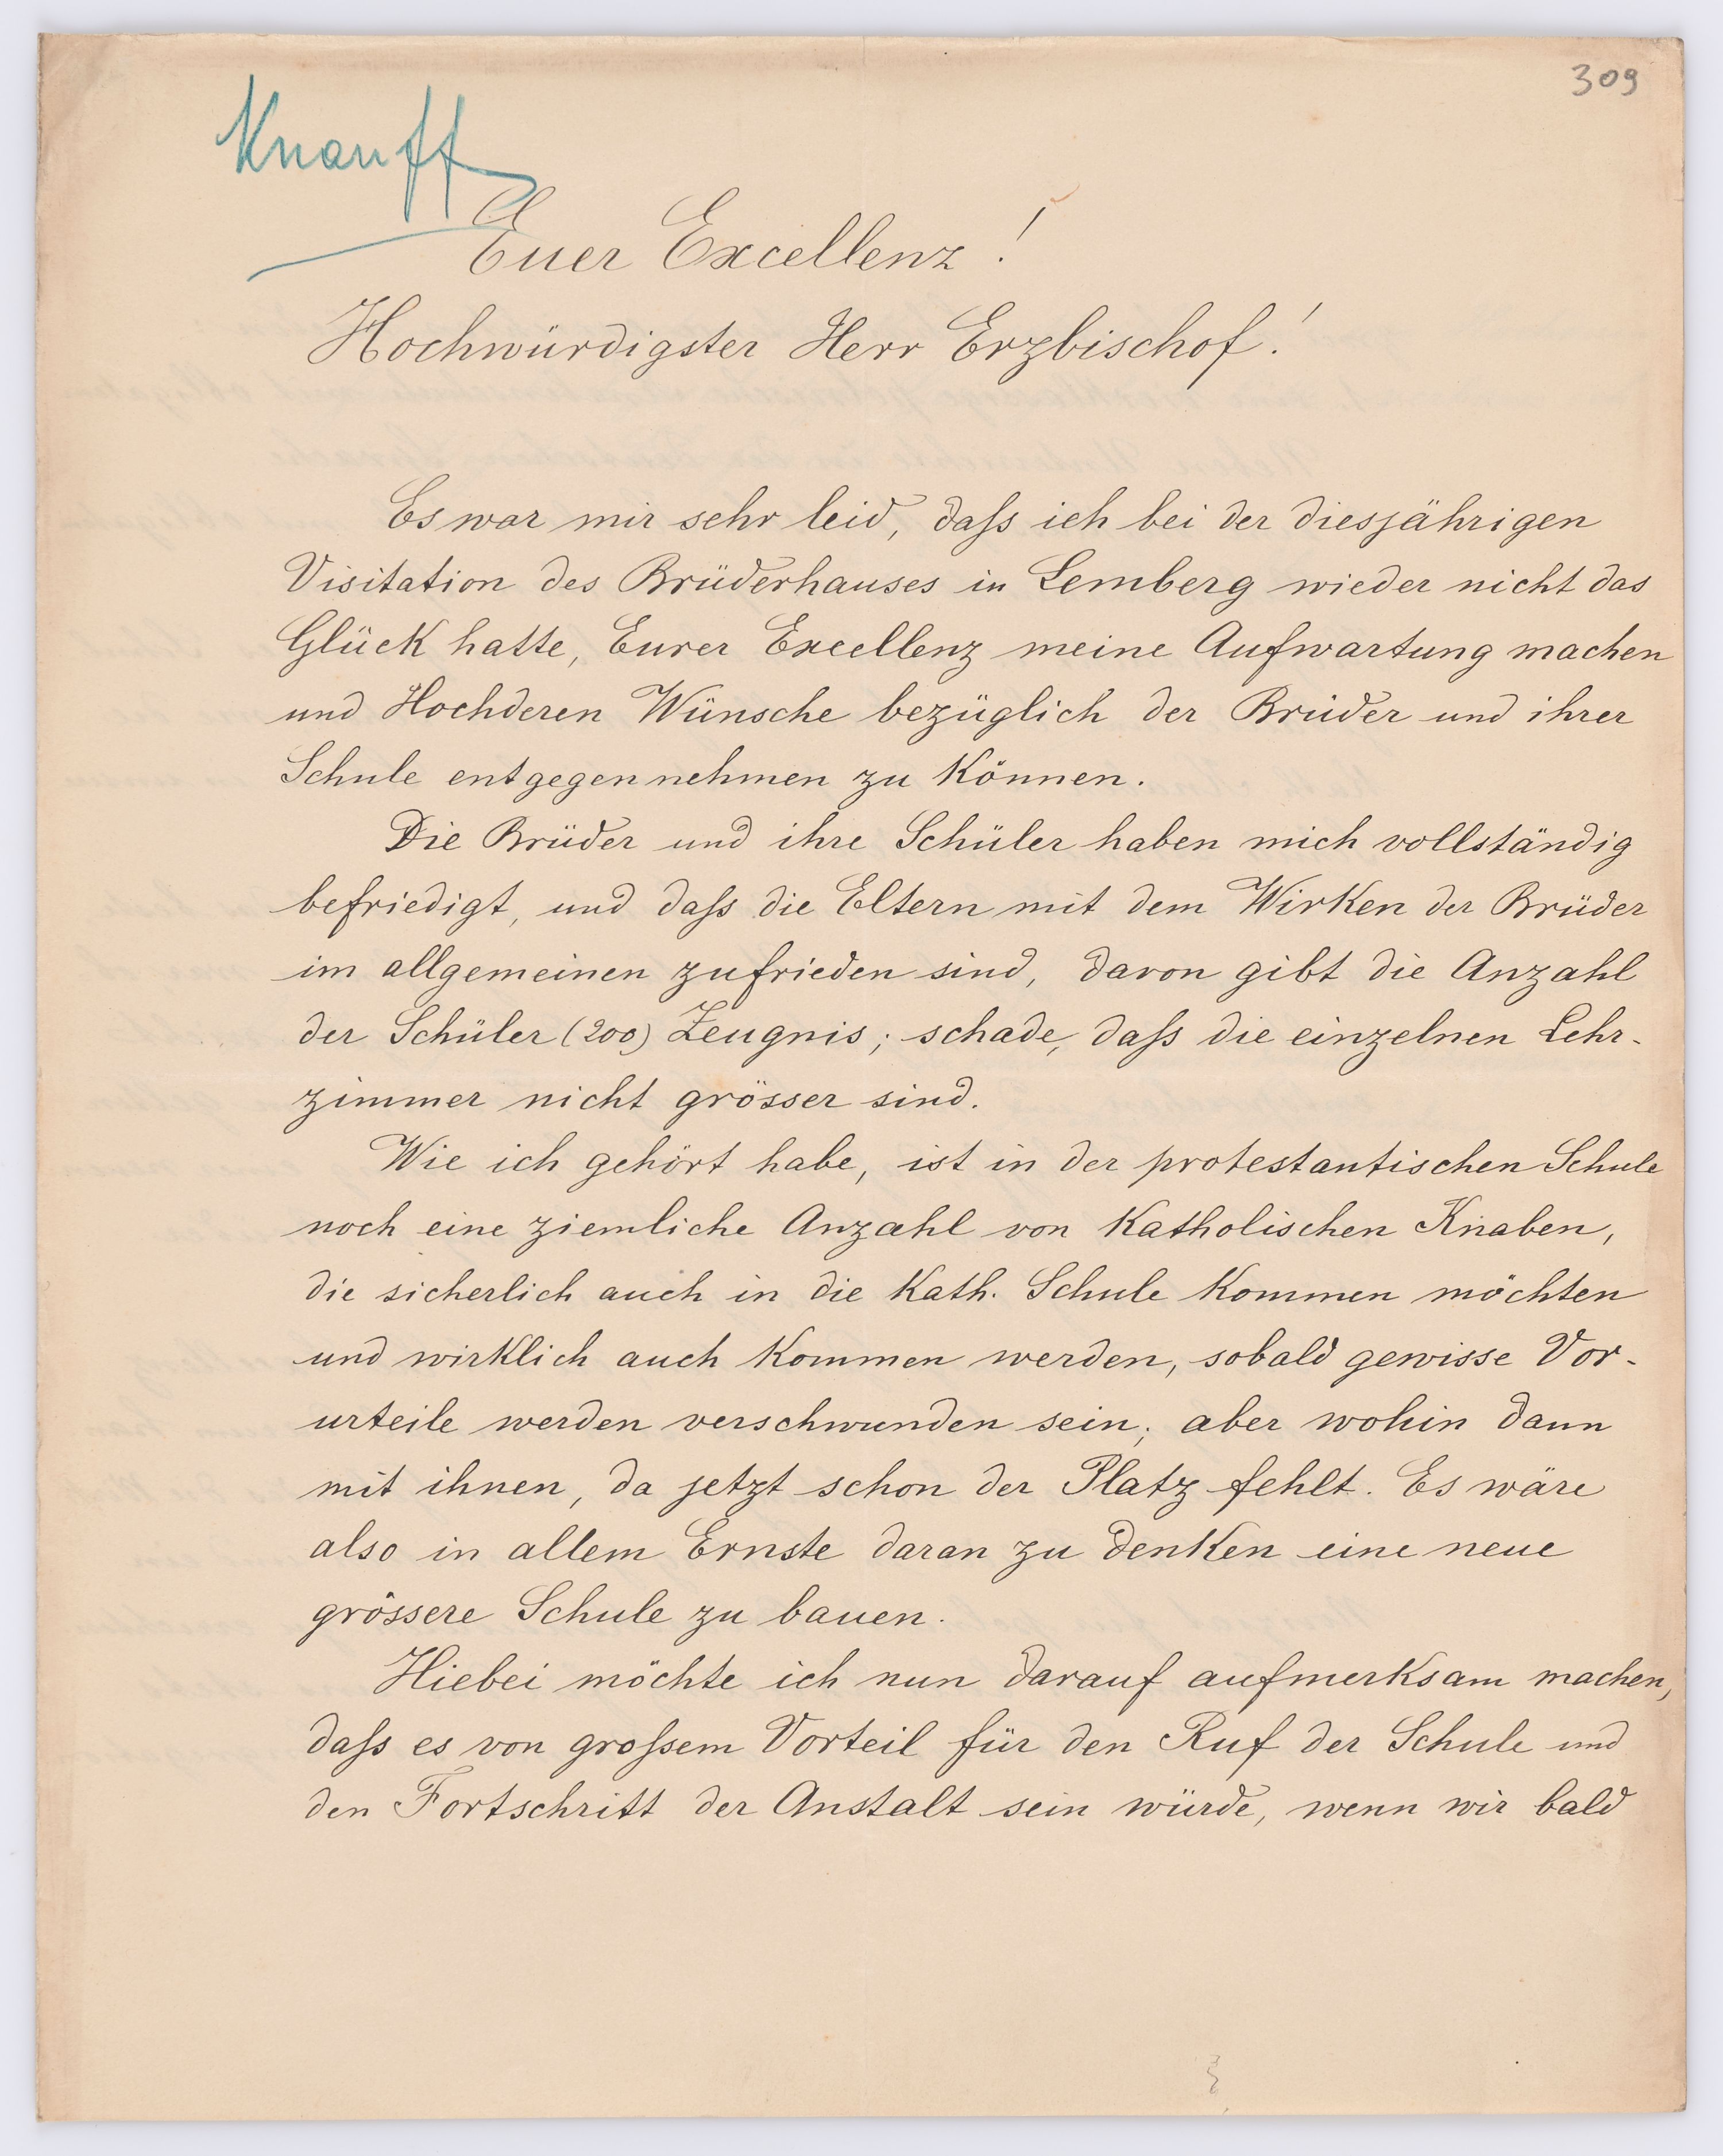 309
Knauff
Euer Excellenz!
Hochwürdigster Herr Erzbischof!
Es war mir sehr leid, daſs ich bei der diesjährigen
Visitation des Brüderhauses in Lemberg wieder nicht das
Glück hatte, Eurer Excellenz meine Aufwartung machen
und Hochderen Wünsche bezüglich der Brüder und ihrer
Schule entgegennehmen zu können.
Die Brüder und ihre Schüler haben mich vollständig
befriedigt, und daſs die Eltern mit dem Wirken der Brüder
im allgemeinen zufrieden sind, davon gibt die Anzahl
der Schüler (200) Zeugnis; schade, daſs die einzelnen Lehr-
zimmer nicht grösser sind.
Wie ich gehört habe, ist in der protestantischen Schule
noch eine ziemliche Anzahl von katholischen Knaben,
die sicherlich auch in die kath. Schule kommen möchten
und wirklich auch kommen werden, sobald gewisse Vor-
urteile werden verschwunden sein; aber wohin dann
mit ihnen, da jetzt schon der Platz fehlt. Es wäre
also in allem Ernste daran zu denken eine neue
grössere Schule zu bauen.
Hiebei möchte ich nun darauf aufmerksam machen,
daſs es von groſsem Vorteil für den Ruf der Schule und
den Fortschritt der Anstalt sein würde, wenn wir bald